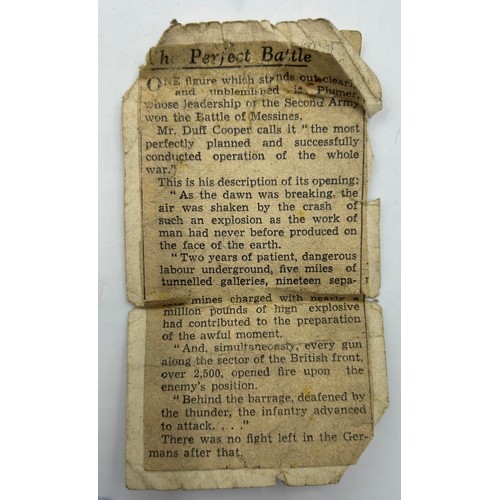 The Perfect Battle
ONE figure which stands out clearly
and unblemished is Plumer,
whose leadership of the Second Army
won the Battle of Messines.
Mr. Duff Cooper calls it "the most
perfectly planned and successfully
conducted operation of the whole
war."
This is his description of its opening:
"As the dawn was breaking, the
air was shaken by the crash of
such an explosion as the work of
man had never before produced on
the face of the earth.
"Two years of patient, dangerous
labour underground, five miles of
tunnelled galleries, nineteen sepa-
mines charged with nearly a
million pounds of high explosive
had contributed to the preparation
of the awful moment.
"And, simultaneously, every gun
along the sector of the British front,
over 2,500, opened fire upon the
enemy's position.
"Behind the barrage, deafened by
the thunder, the infantry advanced
to attack. . . ."
There was no fight left in the Ger-
mans after that.